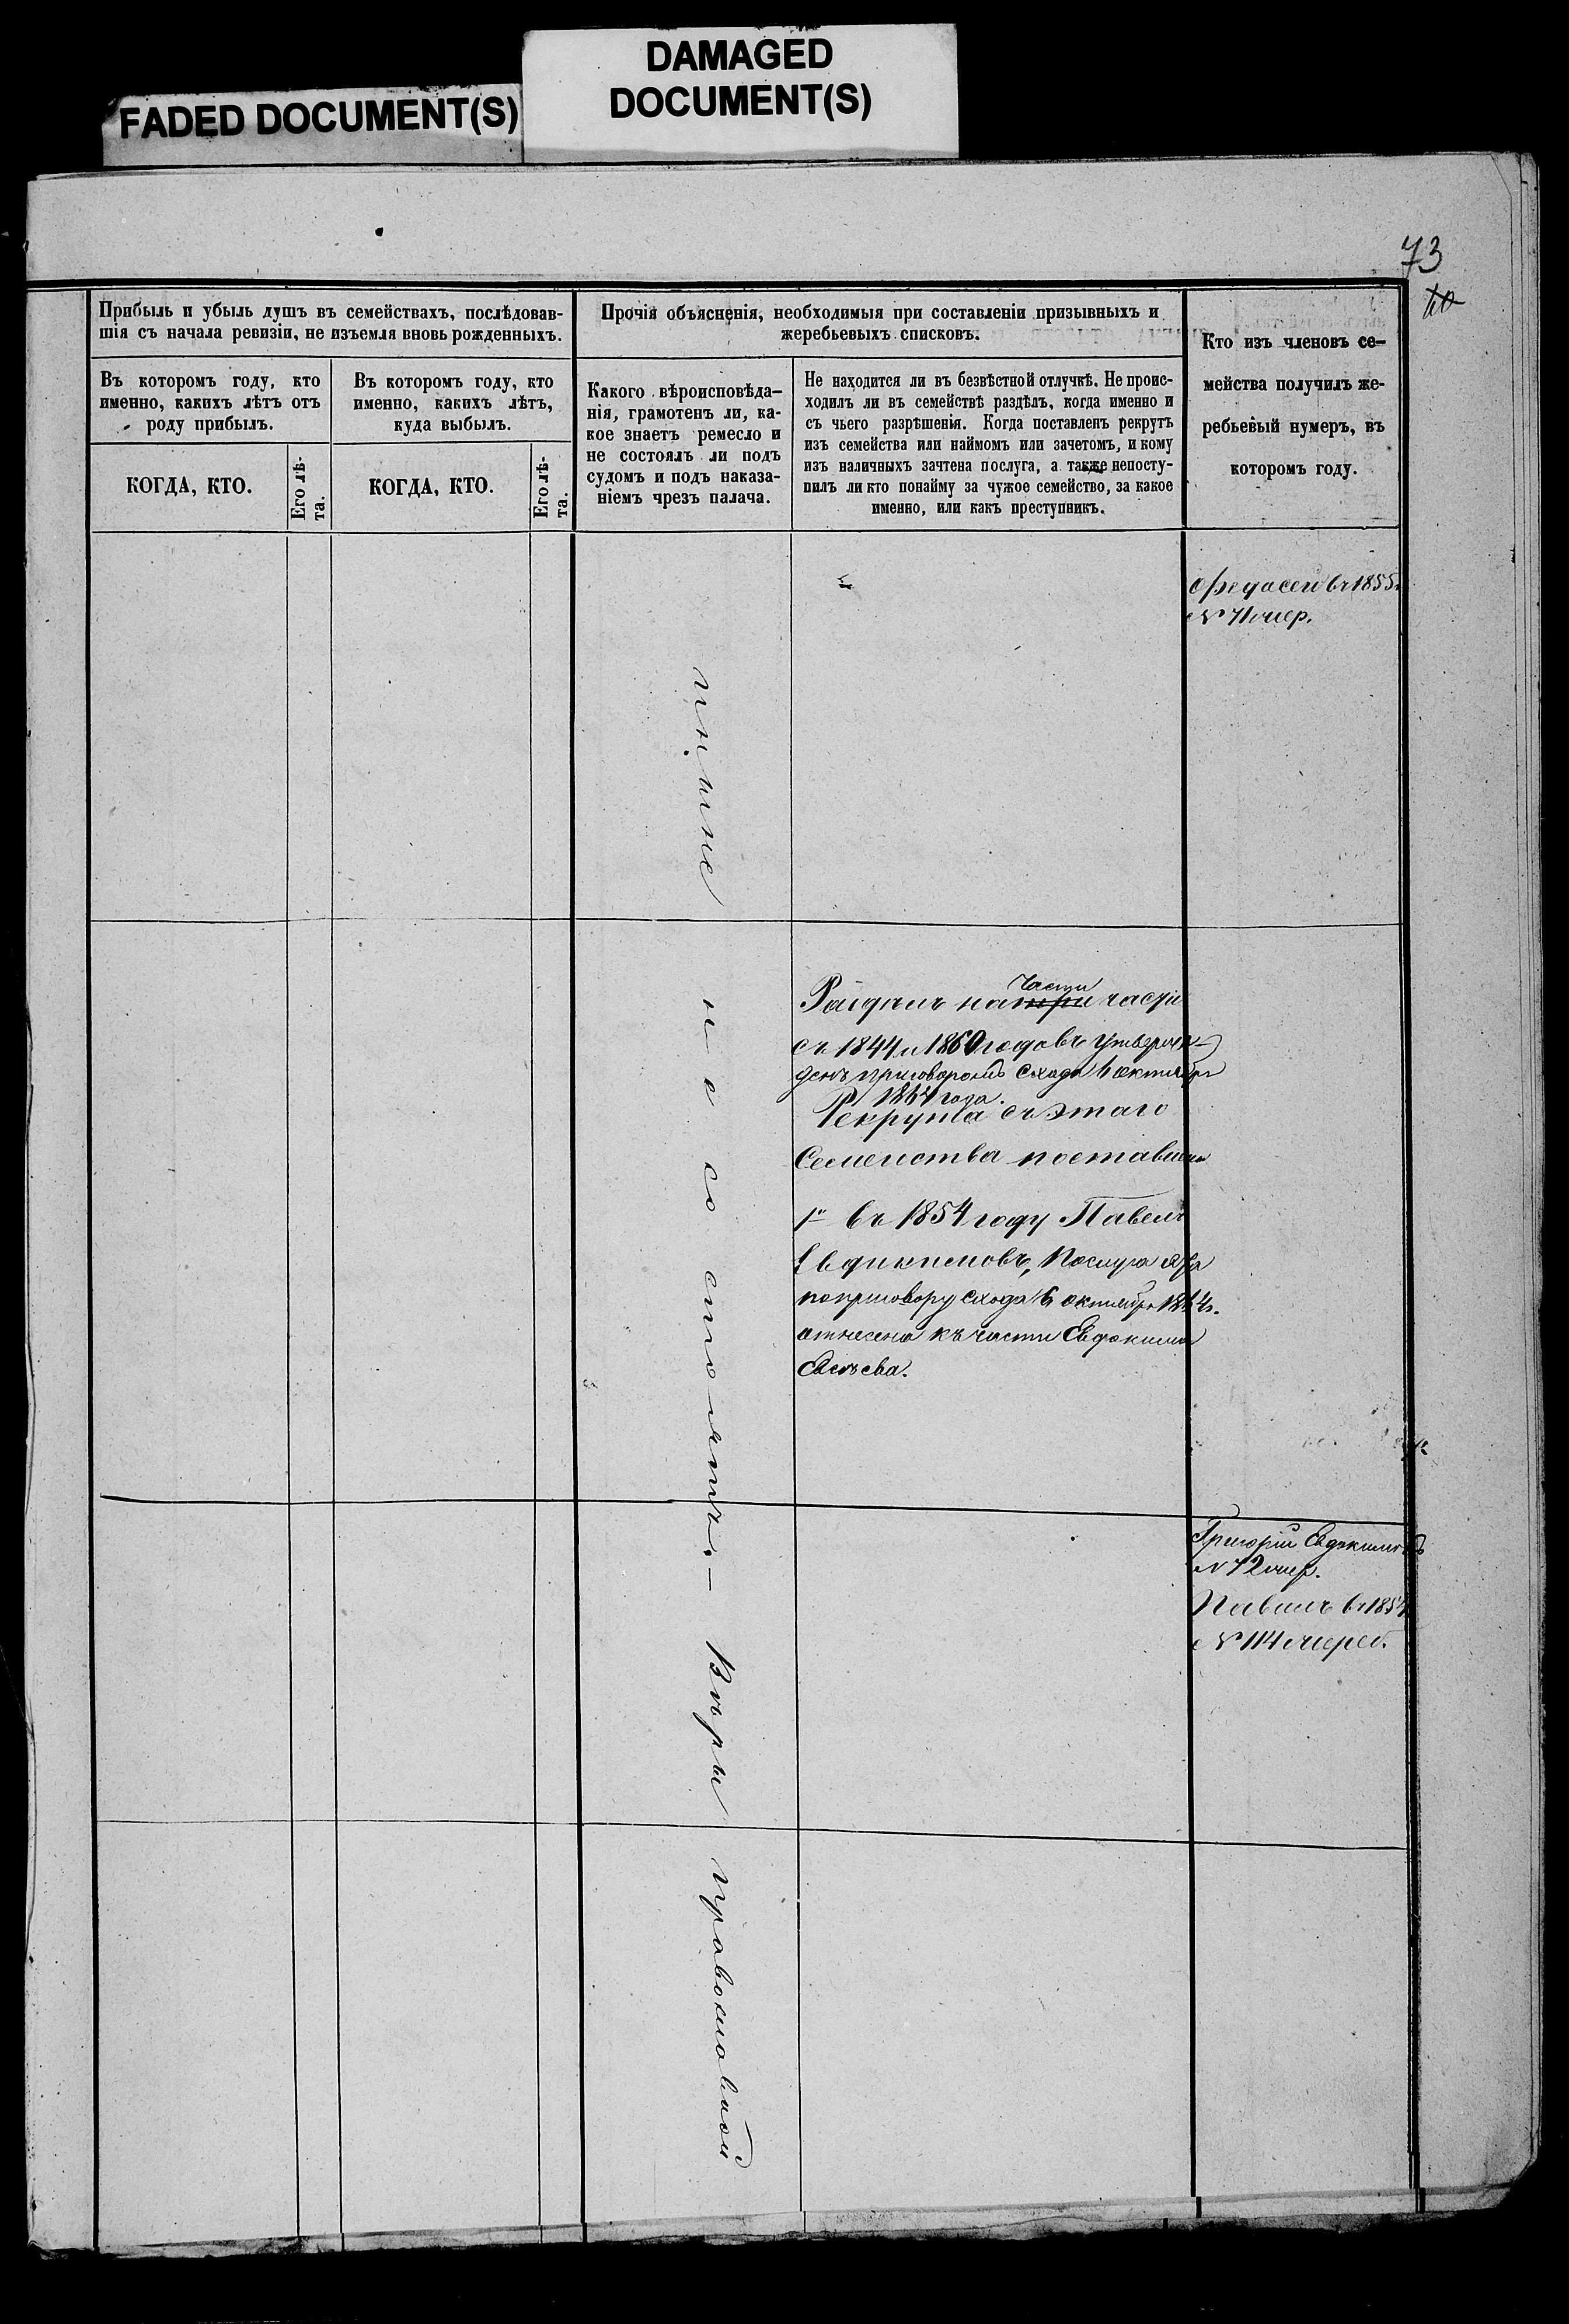 FADED DOCUMENT(S)
DAMAGED
DOCUMENT(S)
73
Прибыль и убыль душъ въ семействахъ, послѣдовав-
шія съ начала ревизіи, не изъемля вновь рожденныхъ.
Въ которомъ году, кто
именно, какихъ лѣтъ отъ
роду прибылъ.
КОГДА, КТО.
Его лѣ-
та.
Въ которомъ году, кто
именно, какихъ лѣтъ,
куда выбылъ.
КОГДА, КТО.
Его лѣ-
та.
Прочія объясненія, необходимыя при составленіи призывныхъ и
жеребьевыхъ списковъ.
Какого вѣроисповѣда-
нія, грамотенъ ли, ка-
кое знаетъ ремесло и
не состоялъ ли подъ
судомъ и подъ наказа-
ніемъ чрезъ палача.
Не находится ли въ безвѣстной отлучкѣ. Не проис-
ходилъ ли въ семействѣ раздѣлъ, когда именно и
съ чьего разрѣшенія. Когда поставленъ рекрутъ
изъ семейства или наймомъ или зачетомъ, и кому
изъ наличныхъ зачтена послуга, а также непосту-
пилъ ли кто понайму за чужое семейство, за какое
именно, или какъ преступникъ.
Кто изъ членовъ се-
мейства получилъ же-
ребьевый нумеръ, въ
которомъ году.
въ 1855
№ 71 жер.
не состоятъ. — Вѣры православной
части
Раздѣлъ на три части
съ 1844 и 1860 годовъ утверж-
денъ приговоромъ схода 6 октября
1864 года.
Рекрута съ этаго
Семейства поставлено
1й въ 1854 году Павелъ
Евдикимовъ, Послуга
поприговору схода 6 октября 1864 г.
отнесена къ части Евдокима
Григорій Евдокимовъ
№ 72 жер.
Павелъ въ 1854
№ 114 жереб.